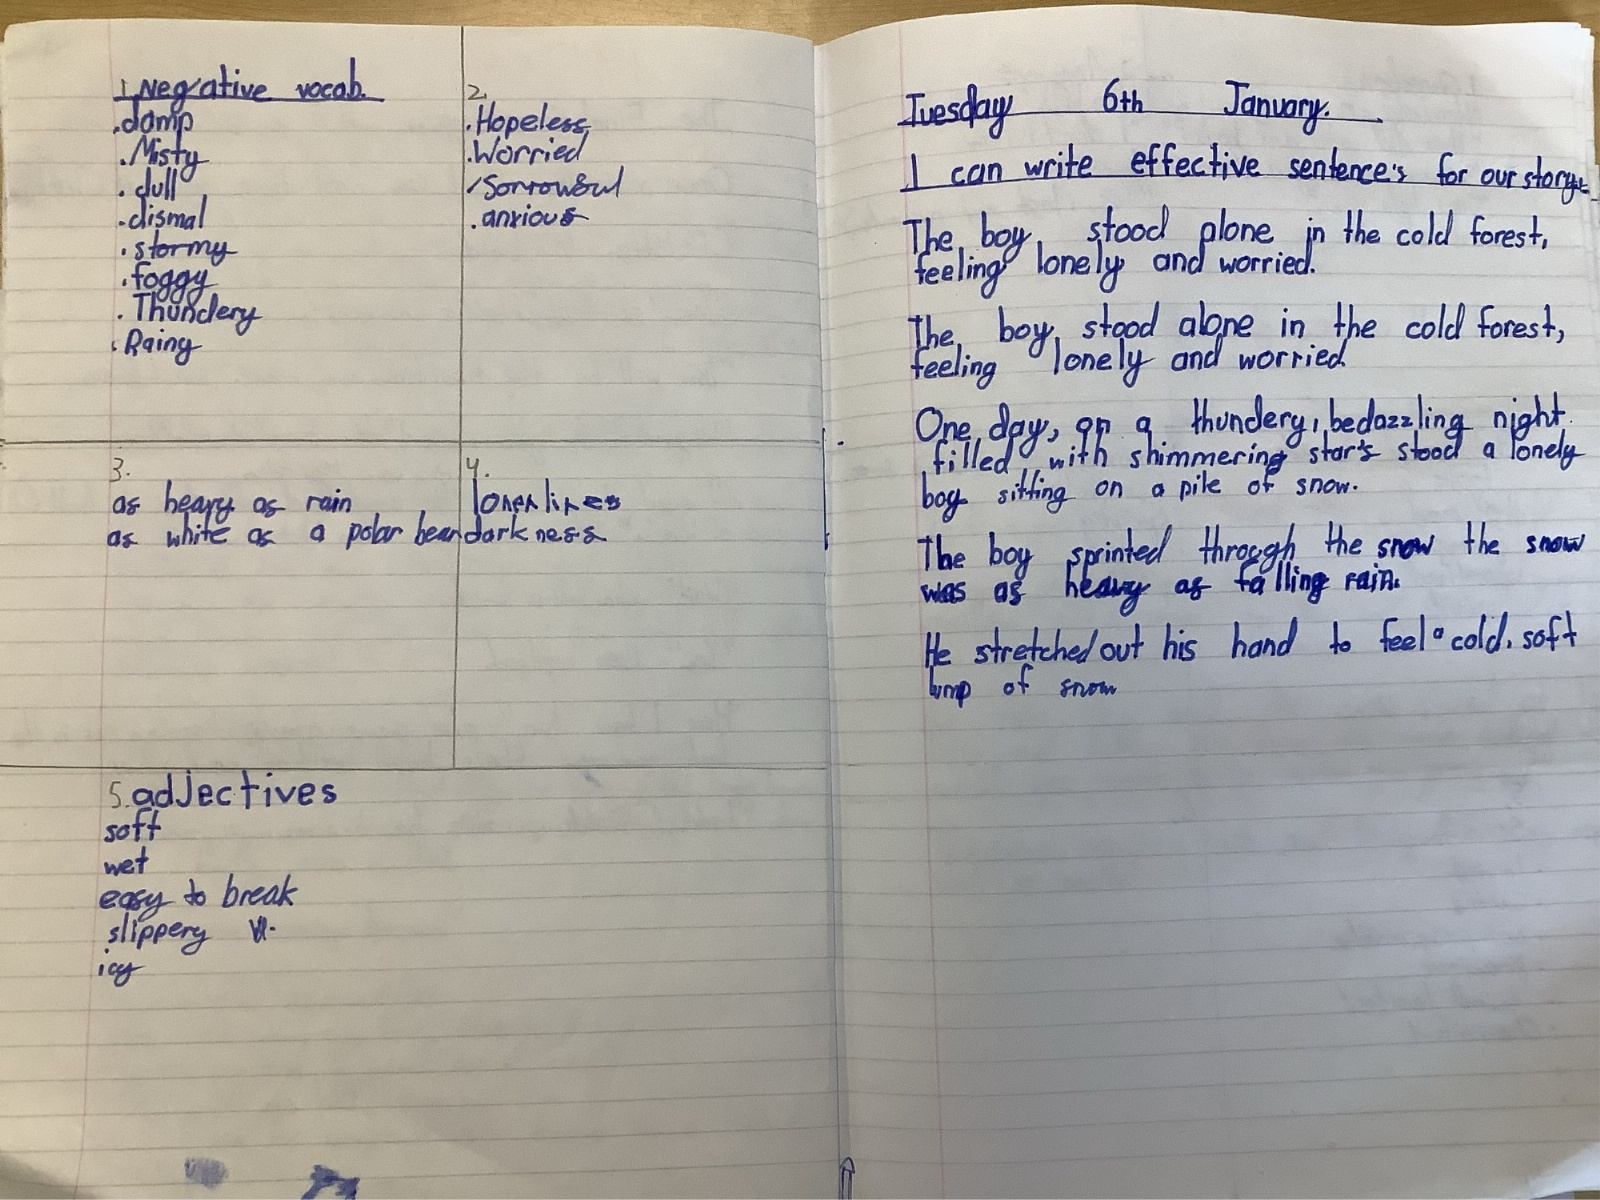 1. Negative vocab.
.damp
.Misty
. dull
.dismal
. stormy
. foggy
. Thundery
. Rainy
2.
. Hopeless
. Worried
sorrowful
. anxious
3.
as heavy as rain
as white as a polar bear
4.
darkness
5. adjectives
soft
wet
easy to break
slippery
icy
Tuesday 6th January.
I can write effective sentence's for our story.
The boy stood alone in the cold forest,
feeling lonely and worried.
The boy stood alone in the cold forest,
feeling lonely and worried.
One day, on a thundery, bedazzling night
filled with shimmering star's stood a lonely
boy sitting on a pile of snow.
The boy sprinted through the snow the snow
was as heavy as falling rain.
He stretched out his hand to feel a cold, soft
lump of snow